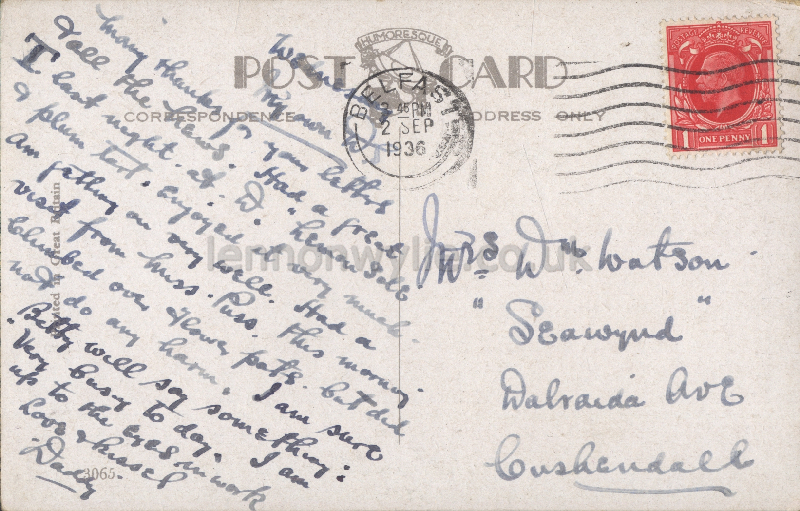 HUMORESQUE
POST CARD
CORRESPONDENCE
ADDRESS ONLY
BELFAST
2 45 PM
2 SEP
1936
POSTAGE REVENUE
1 ONE PENNY 1
Printed in Great Britain
3065
lennonwylie.co.uk
My own
Many thanks for your letters
& all the news. Had a
I last night at D"
a plum tart. Enjoyed it very much.
Am getting on very well. Had a
visit from Miss Puss this morning.
Climbed over flower pots but did
not do any harm. I am sure
Betty will say something.
Very busy to day. I am
up to the eyes in work
Love & kisses
Daddy
Mrs Wm. Watson
"Seawynd"
Dalraida Ave
Cushendall